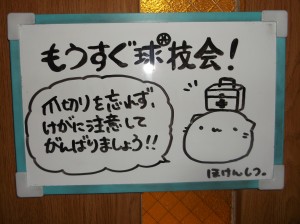 もうすぐ球技会!
爪切りを忘れず、
けがに注意して
がんばりましょう!!
ほけんしつ。